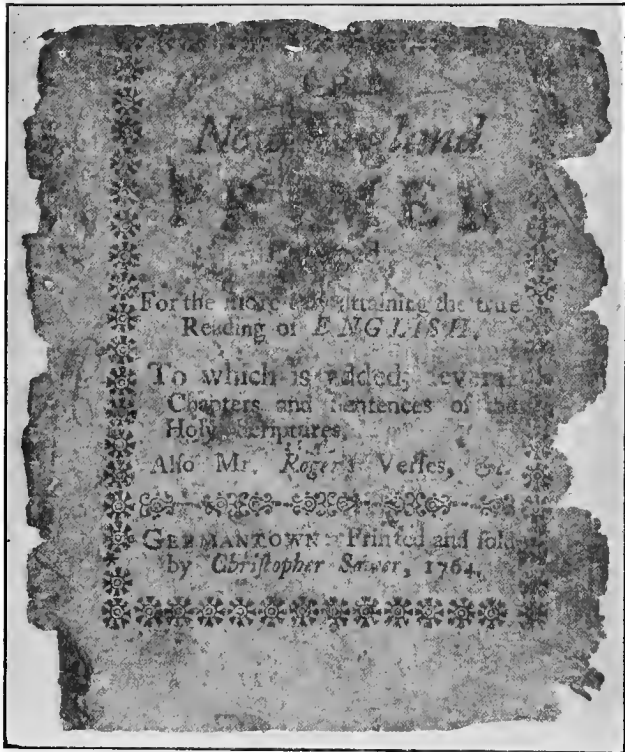 The
New England
PRIMER
For the more easy attaining the true
Reading of ENGLISH.
To which is added, several
Chapters and Sentences of the
Holy Scriptures,
Also Mr. Rogers Verſes, &c.
GERMANTOWN Printed and ſold
by Chriſtopher Sower, 1764.